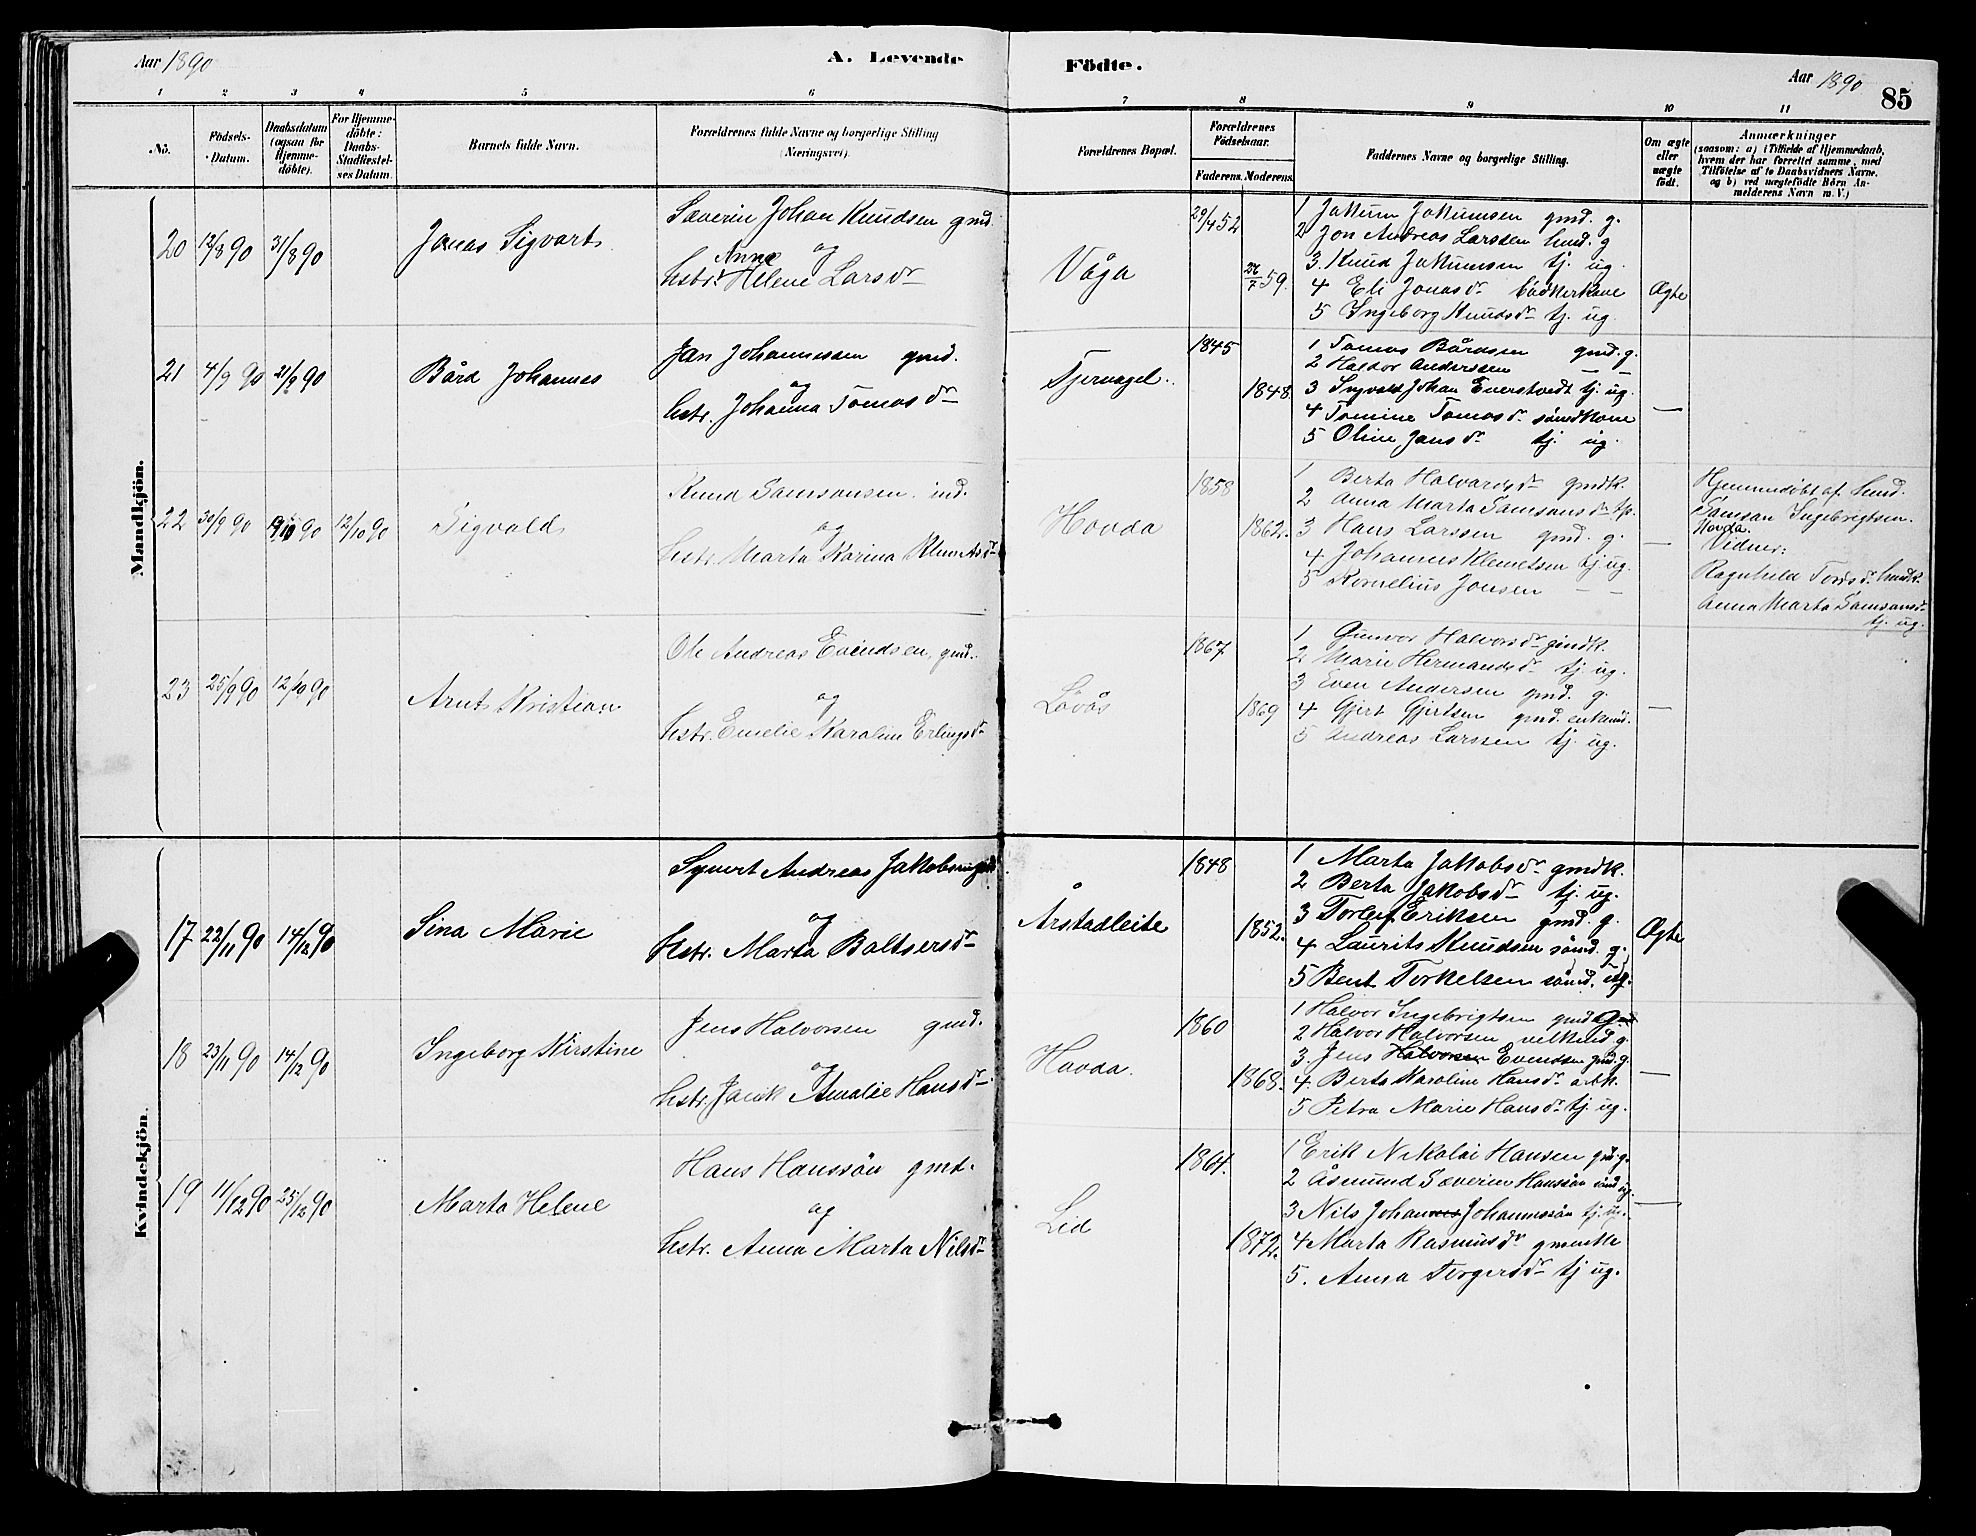 Aar 1890
A. Levende Födte.
Aar 1890
85
1 2 3 4 5 6 7 8 9 10 11
No.
Födsels-Datum.
Daabsdatum (ogsaa for Hjemmedöbte).
For Hjemmedöbte: Daabs-Stadfæstelses Datum.
Barnets fulde Navn.
Forældrenes fulde Navne og borgerlige Stilling (Næringsvei).
Forældrenes Bopæl.
Forældrenes Födselsaar.
Faderens. Moderens.
Faddernes Navne og borgerlige Stilling.
Om ægte eller uægte födt.
Anmærkninger
(saasom: a) i Tilfælde af Hjemmedaab,
hvem der har forrettet samme, med
Tilföielse af to Daabsvidners Navne,
og b) ved uægtefödte Börn Anmelderens Navn m. V.)
Mandkjön.
20 12/8 90 31/8 90
Jonas Sigvart
Severin Johan Knudsen gmd.
og
hstr. Anna Helene Larsdr
Våga
29/4 52
26/7 59.
1 Jakum Jakumsen gmd. g.
2 Jon Andreas Larssen hmd. g
3. Knud Jakumsen tj. ug.
4 Eli Jonasdr bödkerkone
5 Ingeborg Knudsdr tj. ug.
Ægte
21 4/9 90 21/9 90
Bård Johannes
Jan Johannessen gmd.
og
hstr. Johanna Tomasdr
Tjernagel.
1845
1848.
1 Tomas Bårdsen gmd. g.
2 Haldor Anderssen — —
3 Ingvald Johan Everstvedt tj. ug.
4 Tomine Tomasdr sömdkone
5 Oline Jansdr tj. ug.
—
22 30/9 90 10/10 90 12/10 90
Sigvald
Knud Samsonsen ind.
og
hstr. Marta Karina Klemetsdr
Hovda
1858
1862.
1 Berta Halvardsdr gmdk.
2 Anna Marta Samsonsdr tp.
3 Hans Larssen gmd. g.
4 Johannes Klemetsen tj ug.
5 Kornelius Jonsen — —
—
Hjemmedöbt af hmd.
Samson Ingebrigtsen
Hovda.
Vidner:
Ragnhild Tordsdr hmdk.
Anna Marta Samsonsdr
tj. ug.
23 25/9 90 12/10 90
Arnt Kristian
Ole Andreas Evendsen, gmd.
og
hstr. Emelie Karoline Erlingsdr
Lövås
1867
1869
1 Gunvor Halvorsdr gmdk.
2 Marie Hermandsdr tj. ug.
3 Even Andersen gmd. g.
4 Gjert Gjertsen gmd. enkemd.
5 Andreas Larssen tj. ug.
—
Kvindekjön.
17 22/11 90 14/12 90
Sina Marie
Syvert Andreas Jakobsen gmd
og
hstr. Marta Baltsersdr
Årstadleite
1848
1852.
1 Marta Jakobsdr gmdk.
2 Berta Jakobsdr tj. ug.
3 Torleif Eriksen gmd. g.
4 Laurits Knudsen sömd. g.
5 Bent Torkelsen sömd. ug.
Ægte
18 23/11 90 14/12 90
Ingeborg Kirstine
Jens Halvorsen gmd.
og
hstr. Janik Amalie Hansdr
Hovda.
1860
1868.
1 Halvor Ingebrigtsen gmd
2 Halvor Halvorsen g.
3. Jens Halvorsen Evendsen gmd. g.
4. Berta Karoline Hansdr arbk.
5 Petra Marie Hansdr tj. ug.
—
19 11/12 90 25/12 90
Marta Helene
Hans Hanssön gmd.
og
hstr. Anna Marta Nilsdr
Lid
1864.
1872.
1 Erik Nikolai Hansen gmd g.
2 Åsmund Severin Hanssön sömd ug.
3 Nils Johannes Johannessön tj. ug.
4 Marta Rasmusdr gmenke
5. Anna Torgersdr tj ug.
—